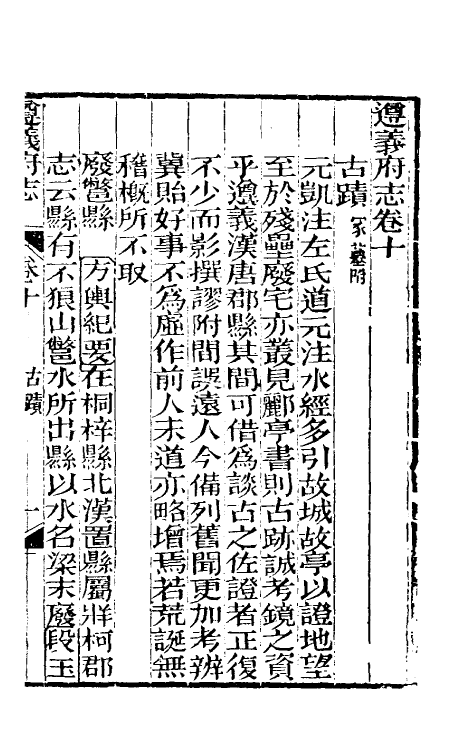 遵義府志卷十
古蹟 冢墓附
元凱注左氏道元注水經多引故城故亭以證地望
至於殘壘廢宅亦叢見酈亭書則古跡誠考鏡之資
乎遵義漢唐郡縣其間可借為談古之佐證者正復
不少而影撰謬附間誤遠人今備列舊聞更加考辨
冀貽好事不為虛作前人未道亦略增焉若荒誕無
稽槪所不取
廢鄨縣 方輿紀要在桐梓縣北漢置縣屬牂柯郡
志云縣有不狼山鄨水所出縣以水名梁末廢段玉
遵義府志 卷十 古蹟 一